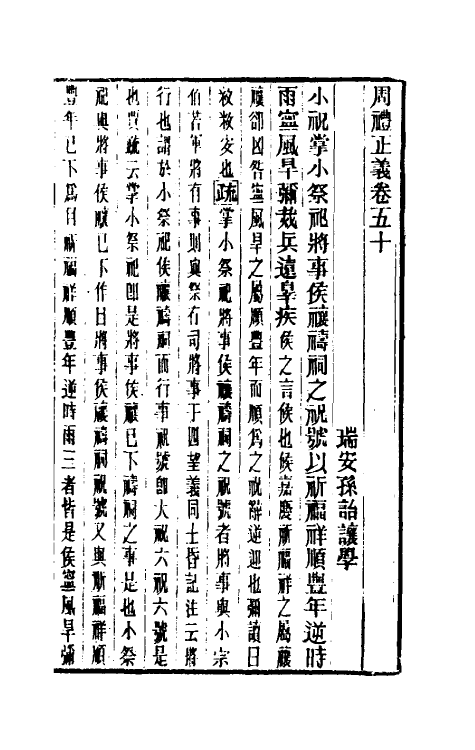 周禮正義卷五十
瑞安孫詒讓學
小祝掌小祭祀將事侯禳禱祠之祝號以祈福祥順豐年逆時
雨寧風旱彌烖兵遠辠疾侯之言候也候嘉慶祈福祥之屬禳
禳卻凶咎寧風旱之屬順豐年而順爲之祝辭逆迎也彌讀曰
敉敉安也疏掌小祭祀將事侯禳禱祠之祝號者將事與小宗
伯若軍將有事則與祭有司將事于四望義同士昏記注云將
行也謂於小祭祀侯禳禱祠而行事祝號卽大祝六祝六號是
也賈疏云掌小祭祀卽是將事侯禳已下禱祠之事是也小祭
祀與將事侯禳已下作目將事侯禳禱祠祝號又與祈福祥順
豐年已下爲目祈福祥順豐年逆時雨三者皆是侯寧風旱彌